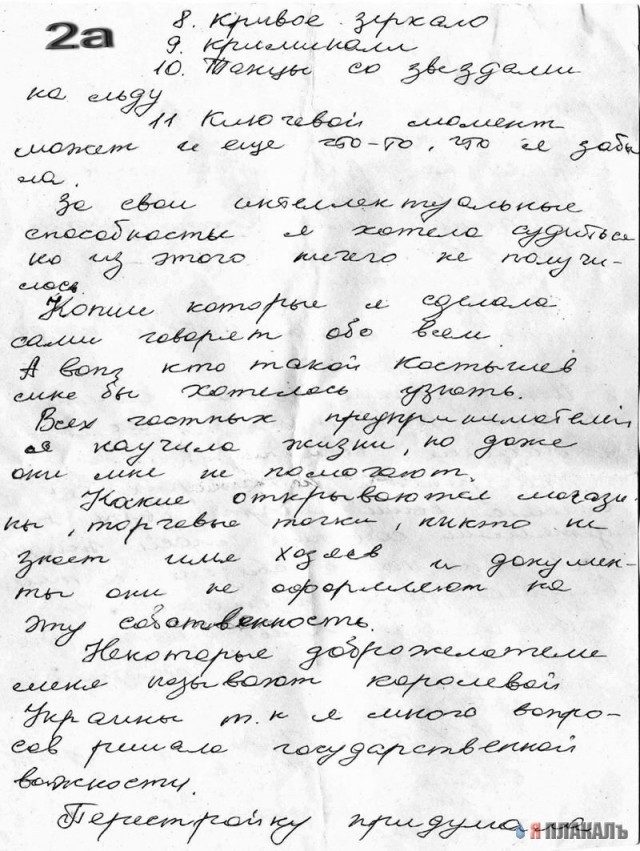 2а
8. Кривое зеркало
9. криминали
10. Танцы со звездами
на льду
11 Ключевой момент
может и еще что-то, что я забы
ла.
За свои интеллектуальные
способности я хотела судиться
но из этого ничего не получи-
лось.
Копии которые я сделала
сами говорят обо всем
А вопз кто такой Костышев
мне бы хотелось узнать.
Всех частных предпринимателей
я научила жизни, но даже
они мне не помогают.
Какие открываются магази-
ны, торговые точки, никто не
знает имя хозяев и докумен-
ты они не оформляют на
эту собственность.
Некоторые доброжелатели
меня называют королевой
Украины т.к я много вопро-
сов решала государственной
важности.
Перестройку придумала
Я ПЛАКАЛЪ